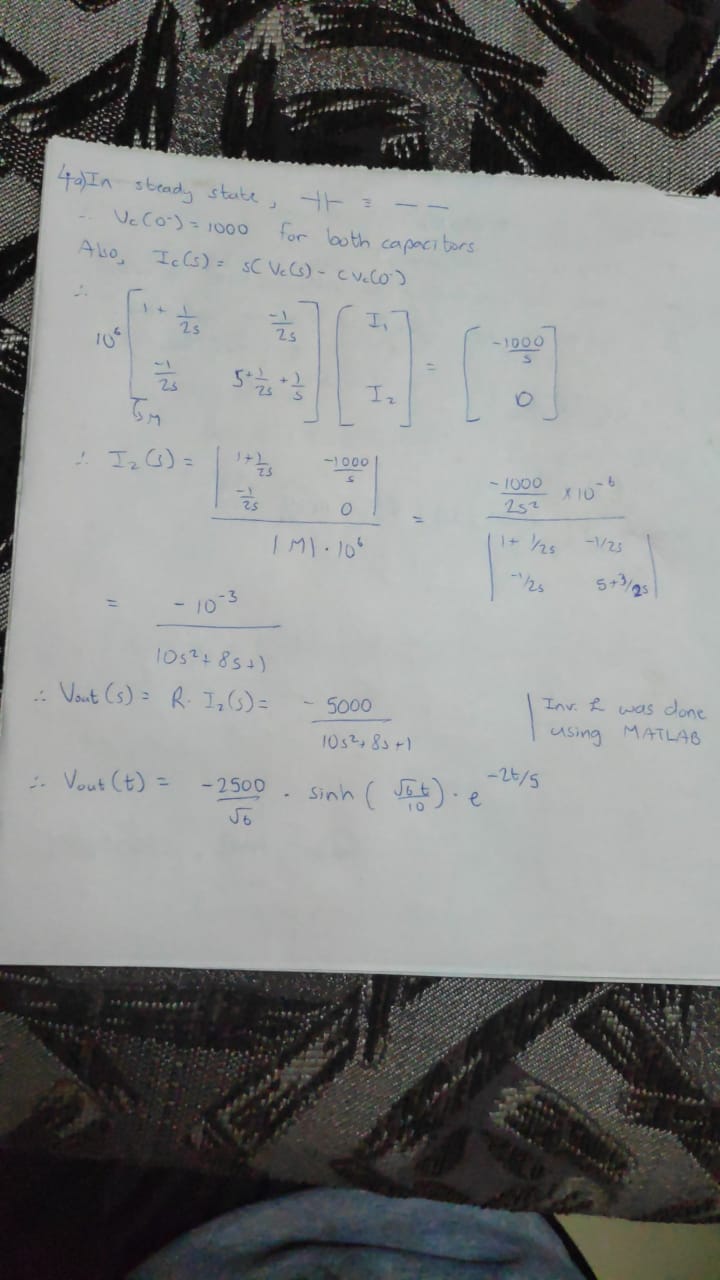 4a) In steady state, ⊣⊢ ≡ — —
∴ Vc(0⁻) = 1000 for both capacitors
Also, Ic(s) = sC Vc(s) - C Vc(0⁻)
∴ 10⁶ [ 1 + 1/2s   -1/2s ; -1/2s   5 + 1/2s + 1/s ] [ I₁ ; I₂ ] = [ -1000/s ; 0 ]
M
∴ I₂(s) = | 1+1/2s   -1000/s ; -1/2s   0 | / |M|·10⁶ = (-1000/2s² × 10⁻⁶) / | 1+1/2s   -1/2s ; -1/2s   5+3/2s |
= -10⁻³ / (10s² + 8s + 1)
∴ Vout(s) = R · I₂(s) = -5000 / (10s² + 8s + 1)
Inv. ℒ was done
using MATLAB
∴ Vout(t) = -2500/√6 · sinh(√6t/10) · e^(-2t/5)